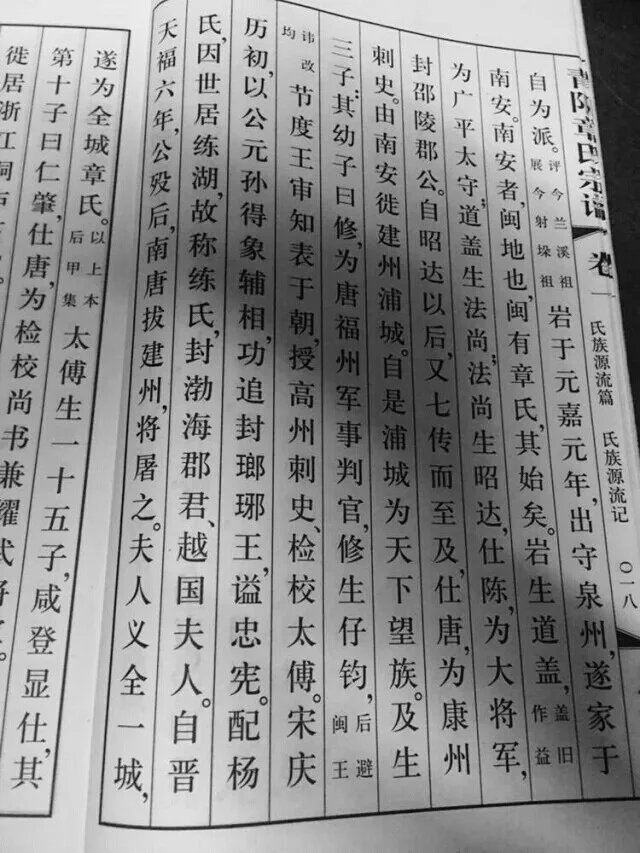 青阳章氏宗谱 卷一 氏族源流篇 氏族源流记 〇一八
自为派。评今兰溪祖展今射垛祖岩于元嘉元年,出守泉州,遂家于
南安。南安者,闽地也,闽有章氏,其始矣。岩生道盖,盖旧作益
为广平太守;道盖生法尚;法尚生昭达,仕陈,为大将军,
封邵陵郡公。自昭达以后,又七传而至及,仕唐,为康州
刺史。由南安徙建州浦城。自是浦城为天下望族。及生
三子:其幼子曰修,为唐福州军事判官,修生仔钧,后避闽王
讳改均节度王审知表于朝,授高州刺史、检校太傅。宋庆
历初,以公元孙得象辅相,功追封瑯琊王,谥忠宪。配杨
氏,因世居练湖,故称练氏,封渤海郡君、越国夫人。自晋
天福六年,公殁后,南唐拔建州,将屠之。夫人义全一城,
遂为全城章氏。以上本后甲集太傅生一十五子,咸登显仕,其
第十子曰仁肇,仕唐,为检校尚书兼耀武将
徙居浙江桐庐